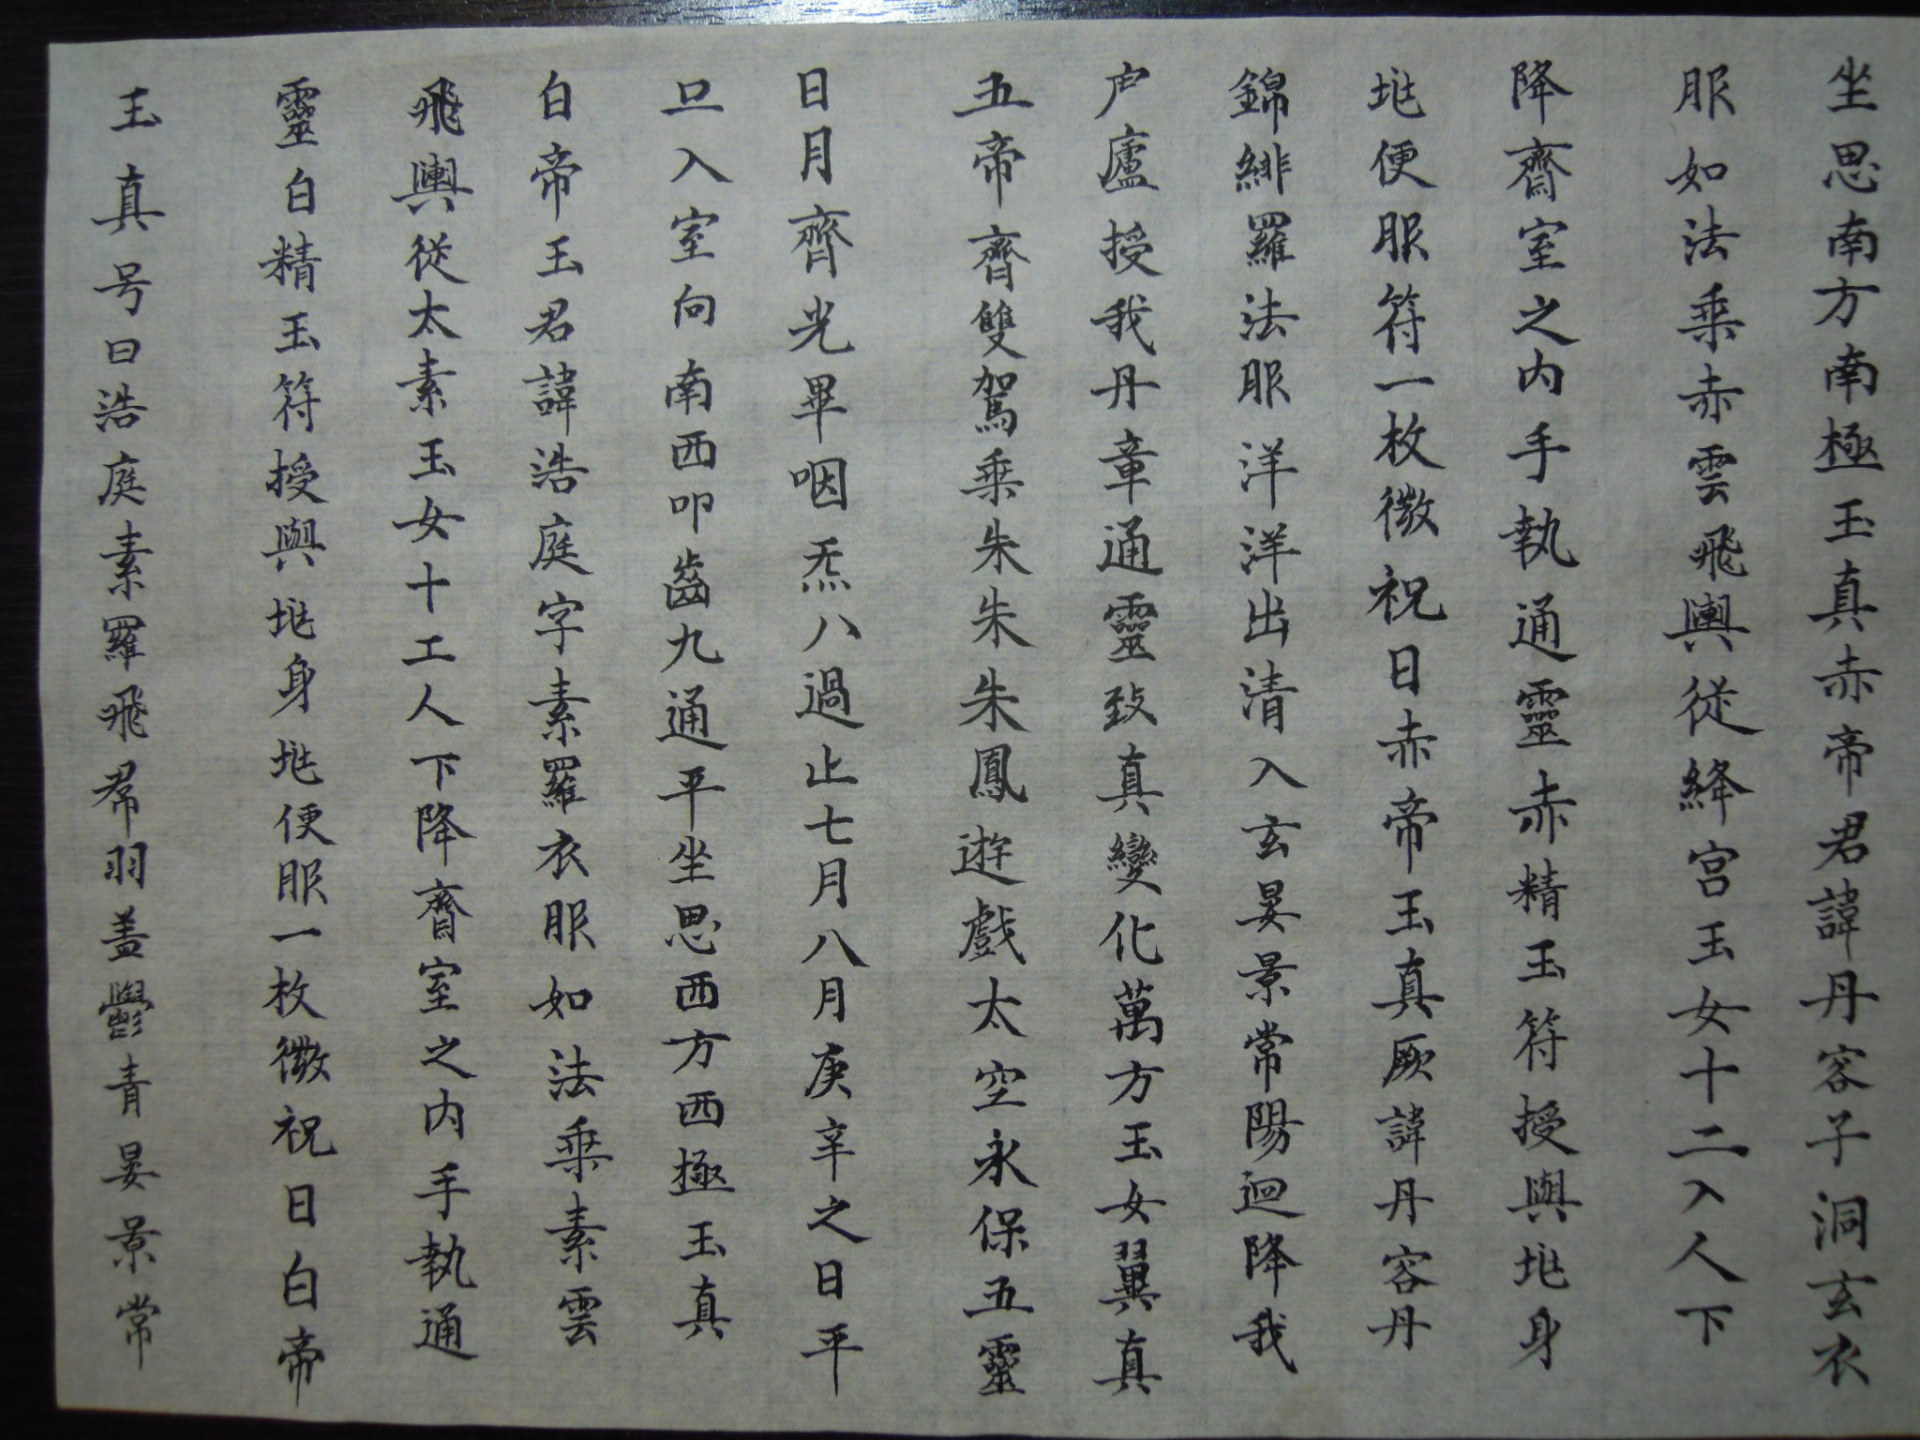 坐思南方南極玉真赤帝君諱丹容子洞玄衣
服如法乘赤雲飛輿從絳宮玉女十二入人下
降齋室之内手執通靈赤精玉符授與地身
地便服符一枚微祝日赤帝玉真厥諱丹容丹
錦緋羅法服洋洋出清入玄晏景常陽迴降我
户廬授我丹章通靈致真變化萬方玉女翼真
五帝齊雙駕乘朱朱朱鳳遊戲太空永保五靈
日月齊光畢咽炁八過止七月八月庚辛之日平
旦入室向南西叩齒九通平坐思西方西極玉真
白帝玉君諱浩庭字素羅衣服如法乘素雲
飛輿從太素玉女十工人下降齋室之内手執通
靈白精玉符授與地身地便服一枚微祝日白帝
玉真号曰浩庭素羅飛帬羽盖鬱青晏景常